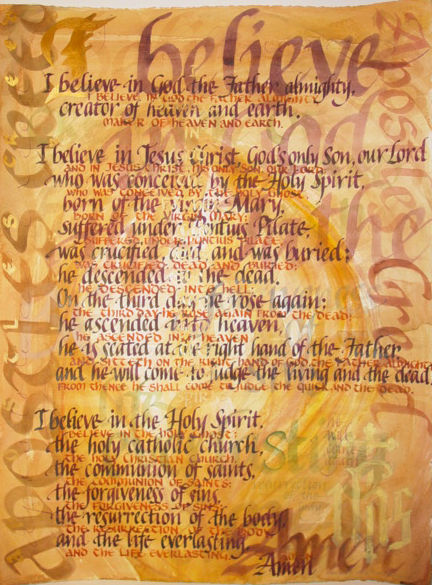 I believe
I believe in God the Father almighty,
I BELIEVE IN GOD THE FATHER ALMIGHTY
creator of heaven and earth.
MAKER OF HEAVEN AND EARTH.
I believe in Jesus Christ, God's only Son, our Lord
AND IN JESUS CHRIST, HIS ONLY SON, OUR LORD
who was conceived by the Holy Spirit,
WHO WAS CONCEIVED BY THE HOLY GHOST
born of the Virgin Mary,
BORN OF THE VIRGIN MARY;
suffered under Pontius Pilate
SUFFERED UNDER PONTIUS PILATE
was crucified, died and was buried;
WAS CRUCIFIED DEAD AND BURIED;
he descended to the dead.
HE DESCENDED INTO HELL;
On the third day he rose again;
THE THIRD DAY HE ROSE AGAIN FROM THE DEAD;
he ascended into heaven,
HE ASCENDED INTO HEAVEN
he is seated at the right hand of the Father
AND SITTETH ON THE RIGHT HAND OF GOD THE FATHER ALMIGHTY
and he will come to judge the living and the dead
FROM THENCE HE SHALL COME TO JUDGE THE QUICK AND THE DEAD.
I believe in the Holy Spirit,
I BELIEVE IN THE HOLY GHOST;
the holy catholic church,
THE HOLY CHRISTIAN CHURCH,
the communion of saints,
THE COMMUNION OF SAINTS;
the forgiveness of sins,
THE FORGIVENESS OF SINS;
the resurrection of the body,
THE RESURRECTION OF THE BODY
and the life everlasting
AND THE LIFE EVERLASTING.
Amen
Apostles Creed
Amen